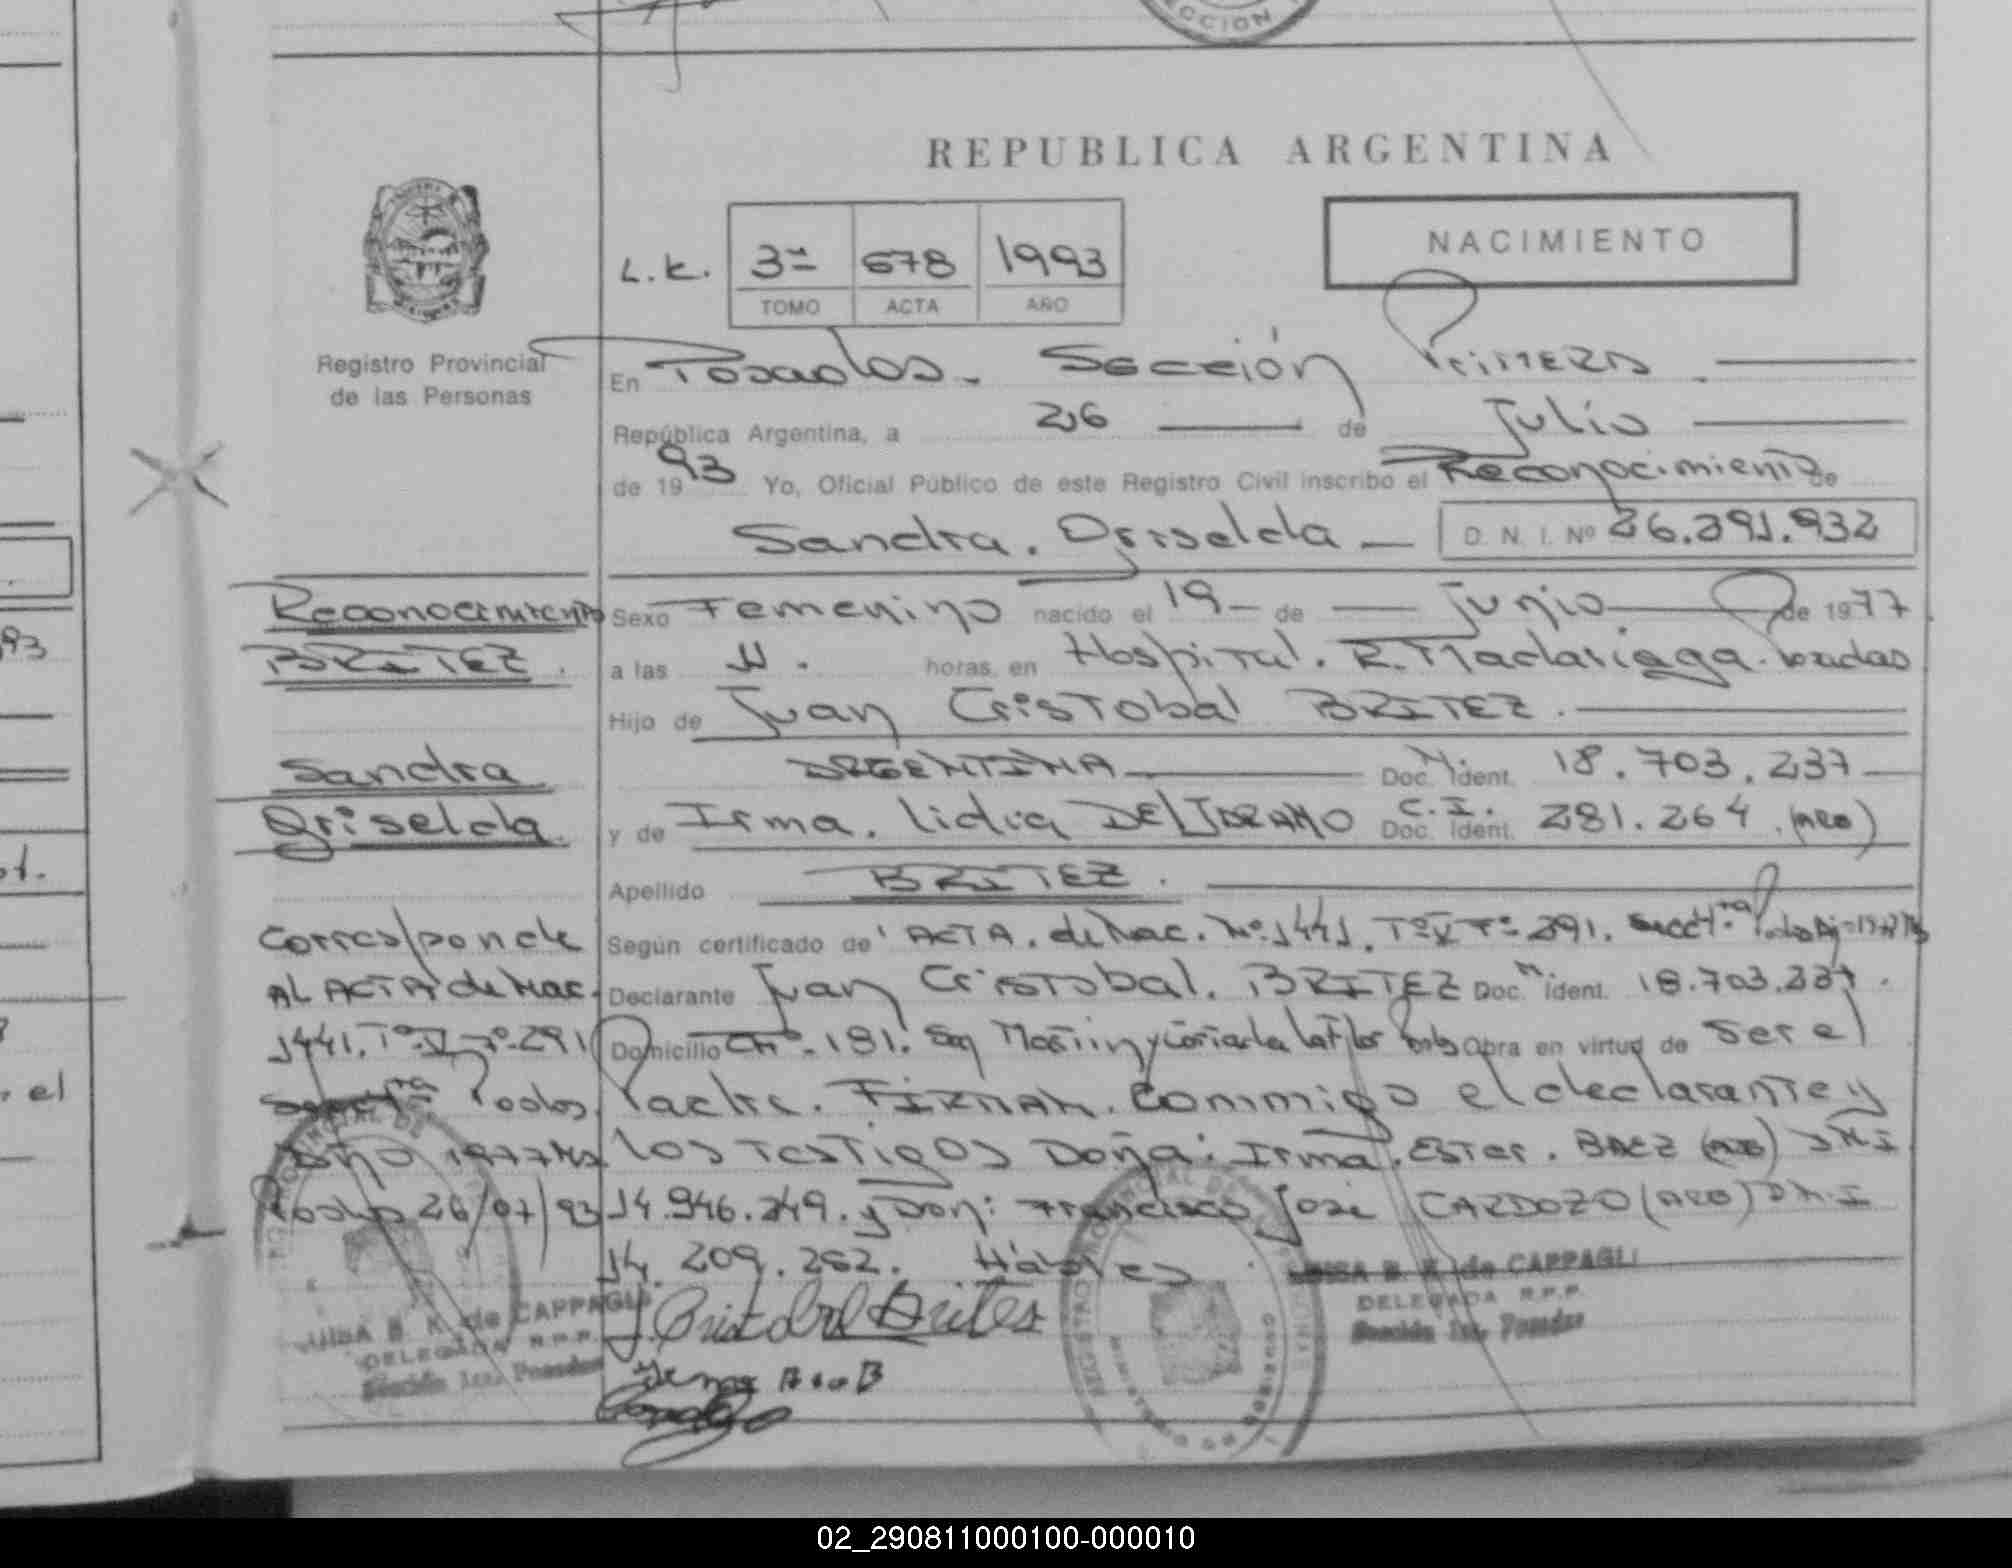 CCION
REPUBLICA ARGENTINA
NACIMIENTO
L.E. 3ª 678 1993
TOMO ACTA AÑO
Registro Provincial
de las Personas
En Posadas. Sección Primera
República Argentina, a 26 de Julio
de 1993 Yo, Oficial Público de este Registro Civil inscribo el Reconocimiento de
Sandra. Griselda D. N. I. Nº 26.391.932
Reconocimiento
BRITEZ.
Sandra
Griselda.
Corresponde
Al ACTA de Nac.
1441. Tº. V Fº. 291
Posdas.
Año 1977
Posdas 26/07/93
Sexo Femenino nacido el 19 de Junio de 1977
a las 11. horas, en Hospital. R. Madariaga. Posadas
Hijo de Juan Cristobal BRITEZ.
ARGENTINA Doc. Ident. 18.703.237
y de Irma. Lidia DEL C.I. Doc. Ident. 281.264. (ARG)
Apellido BRITEZ.
Según certificado de ACTA. de Nac. Nº. 1441. Tº V Fº 291.
Declarante Juan Cristobal. BRITEZ Doc. Ident. 18.703.237.
Domicilio Ch. 181. San Martin y Obra en virtud de ser el
Padre. FIRMAN. Conmigo el declarante y
los Testigos Doña: Irma. Ester. BAEZ (ARG) DNI
14.946.249. y Don: Francisco José CARDOZO (ARG) D.N.I
14.209.262. Hábiles
LUISA B. K. de CAPPAGLI
DELEGADA R.P.P.
Sección 1ra. Posadas
LUISA B. K. de CAPPAGLI
DELEGADA R.P.P.
Sección 1ra. Posadas
J. Cristobal Brites
02_290811000100-000010